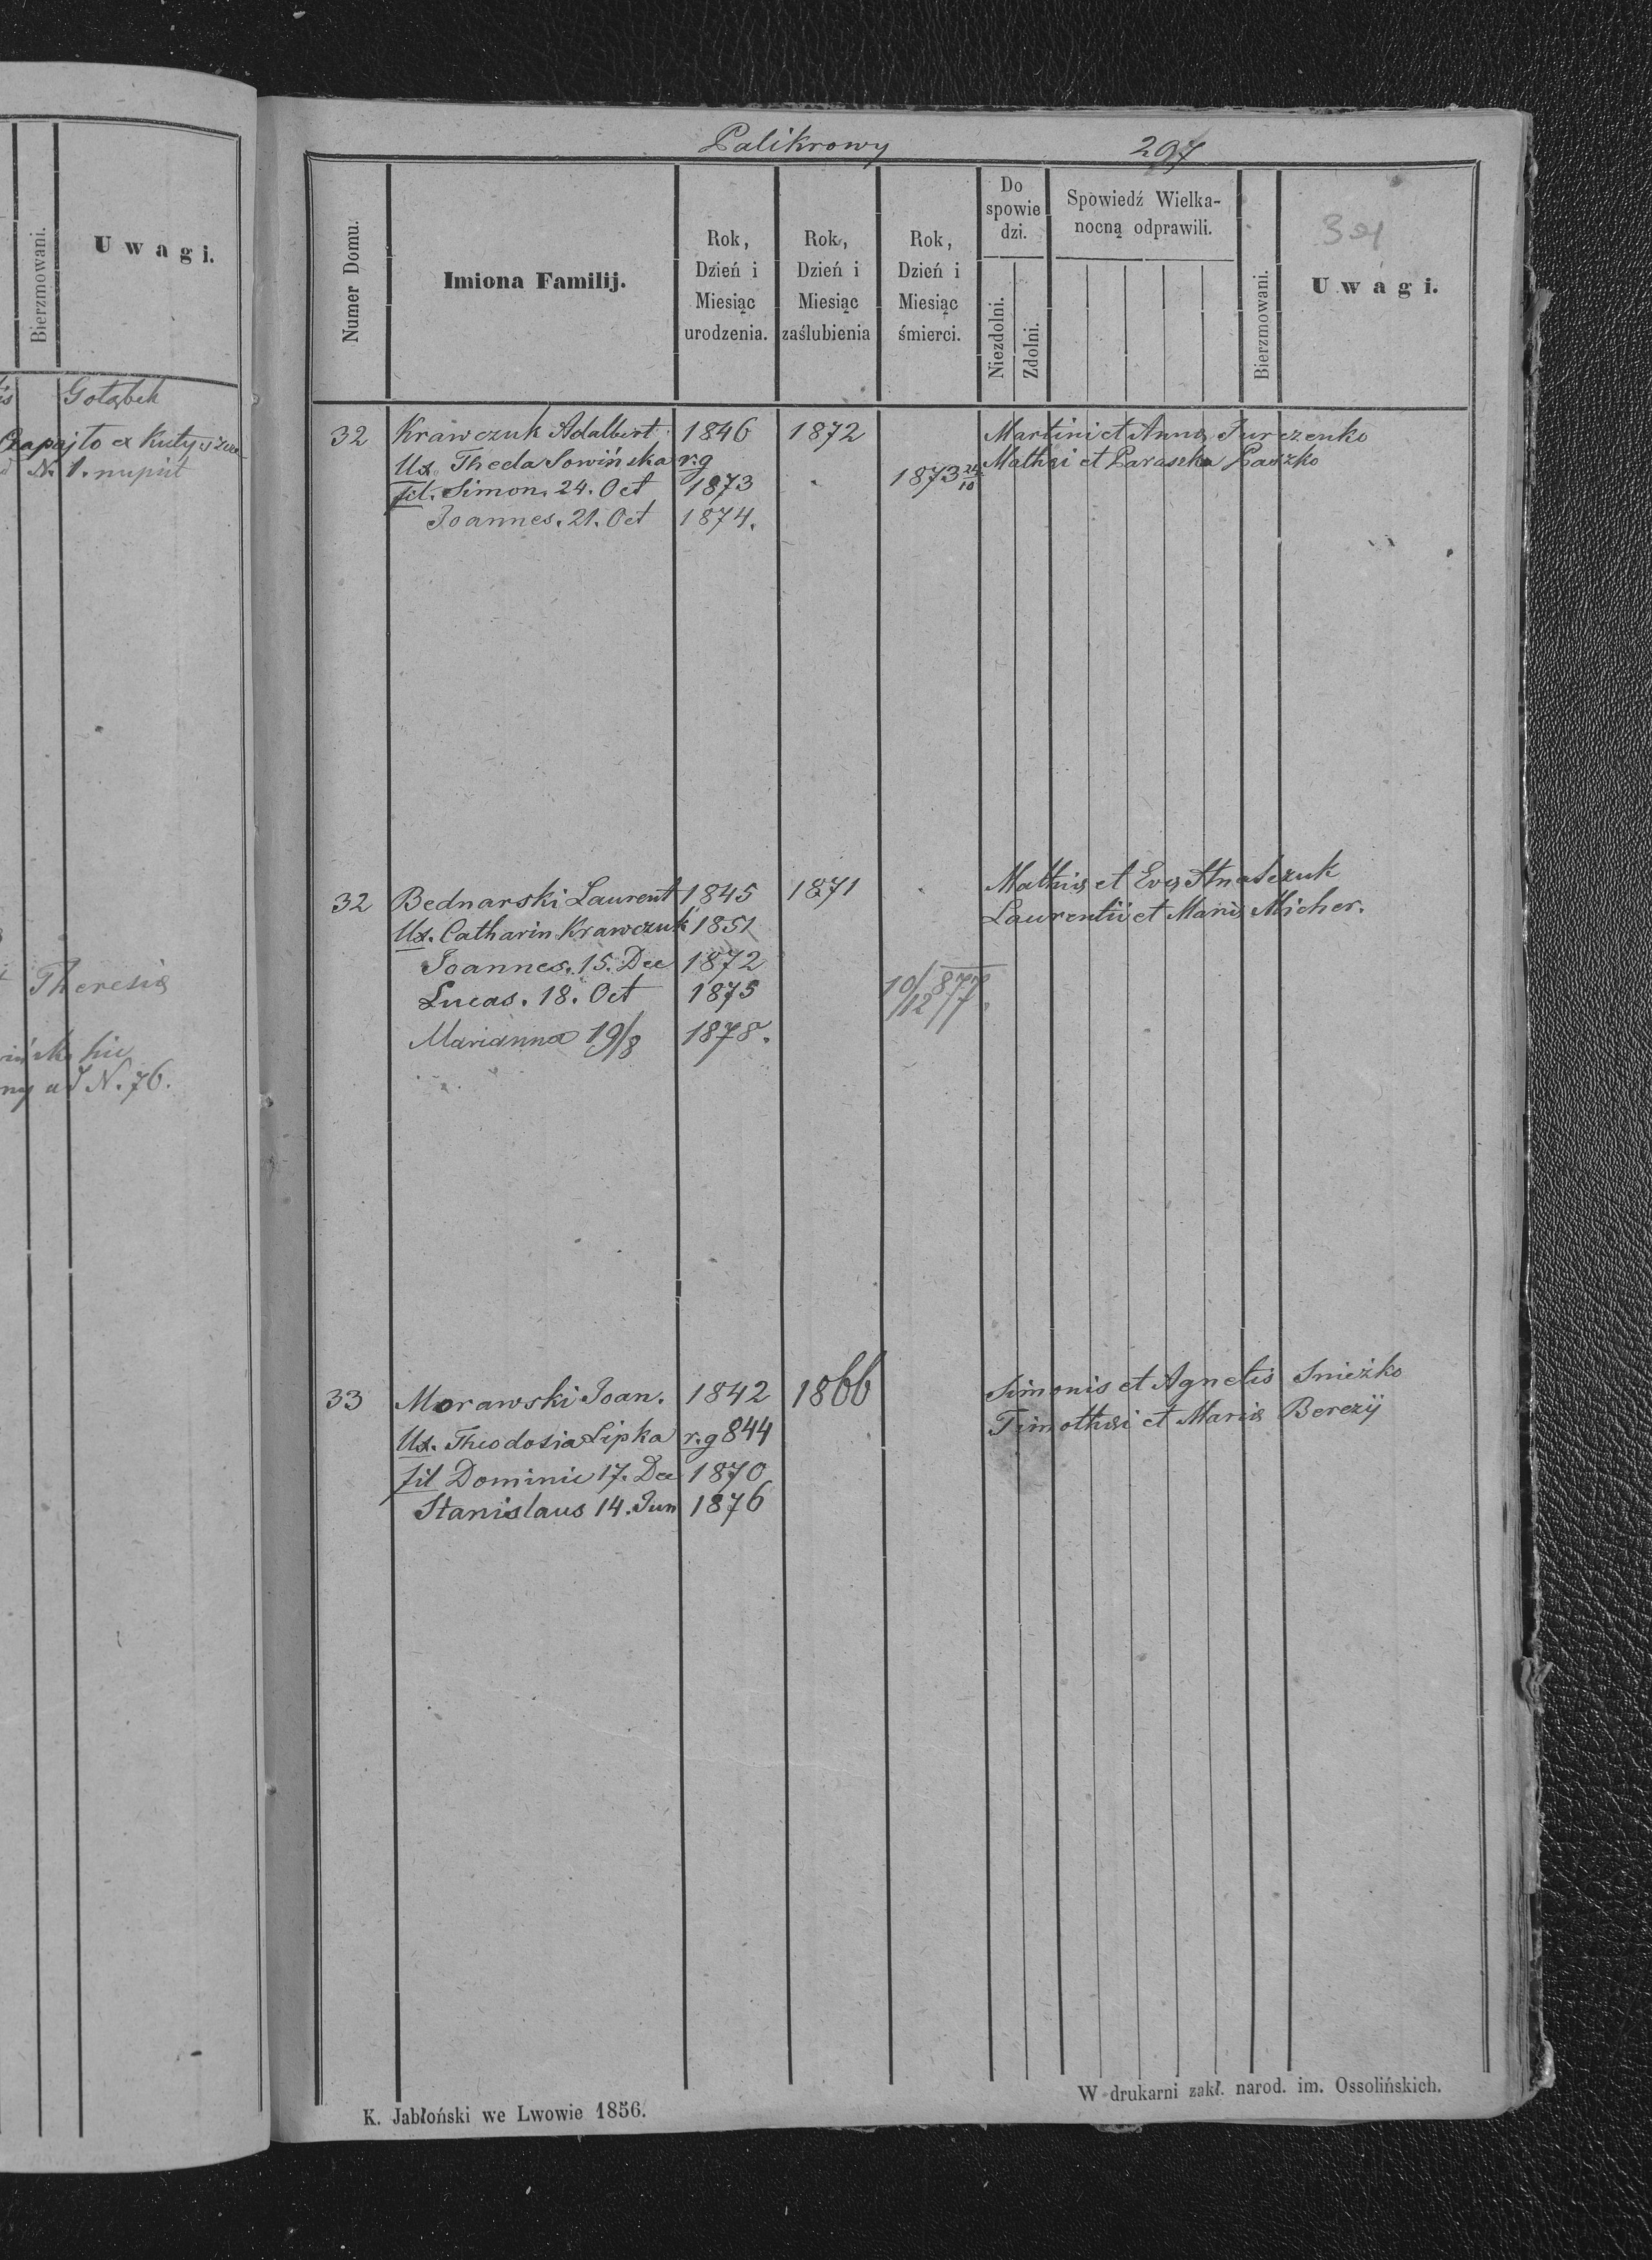 Uwagi.
Bierzmowani.
Gołąbek
Czapajło ex Kutyszcze
N. 1. nupsit
Theresiæ
hic
ad N. 76.
Palikrowy
297
Numer Domu.
Imiona Familij.
Rok, Dzień i Miesiąc urodzenia.
Rok, Dzień i Miesiąc zaślubienia
Rok, Dzień i Miesiąc śmierci.
Do spowie dzi.
Niezdolni.
Zdolni.
Spowiedź Wielka-
nocną odprawili.
Bierzmowani.
Uwagi.
32 Krawczuk Adalbert 1846 1872 Martini et Annæ Jurczenko
Ux. Theda Sowińska r.g Mathæi et Paraszka Paszko
fil. Simon. 24. Oct 1873 1873 24/10
Joannes. 21. Oct 1874.
32 Bednarski Laurent 1845 1871 Mathiæ et Evæ
Ux. Catharin Krawczuk 1851 Laurentii et Mariæ Micher.
Joannes. 15. Dec 1872
Lucas. 18. Oct 1875 10/12 877.
Marianna 19/8 1878.
33 Morawski Joan. 1842 1866 Simonis et Agnetis Snieżko
Ux. Theodosia Lipka r.g 844 Timothæi et Mariæ Berezÿ
fil Dominic 17. Dec 1870
Stanislaus 14. Jun 1876
K. Jabłoński we Lwowie 1856.
W drukarni zakł. narod. im. Ossolińskich.